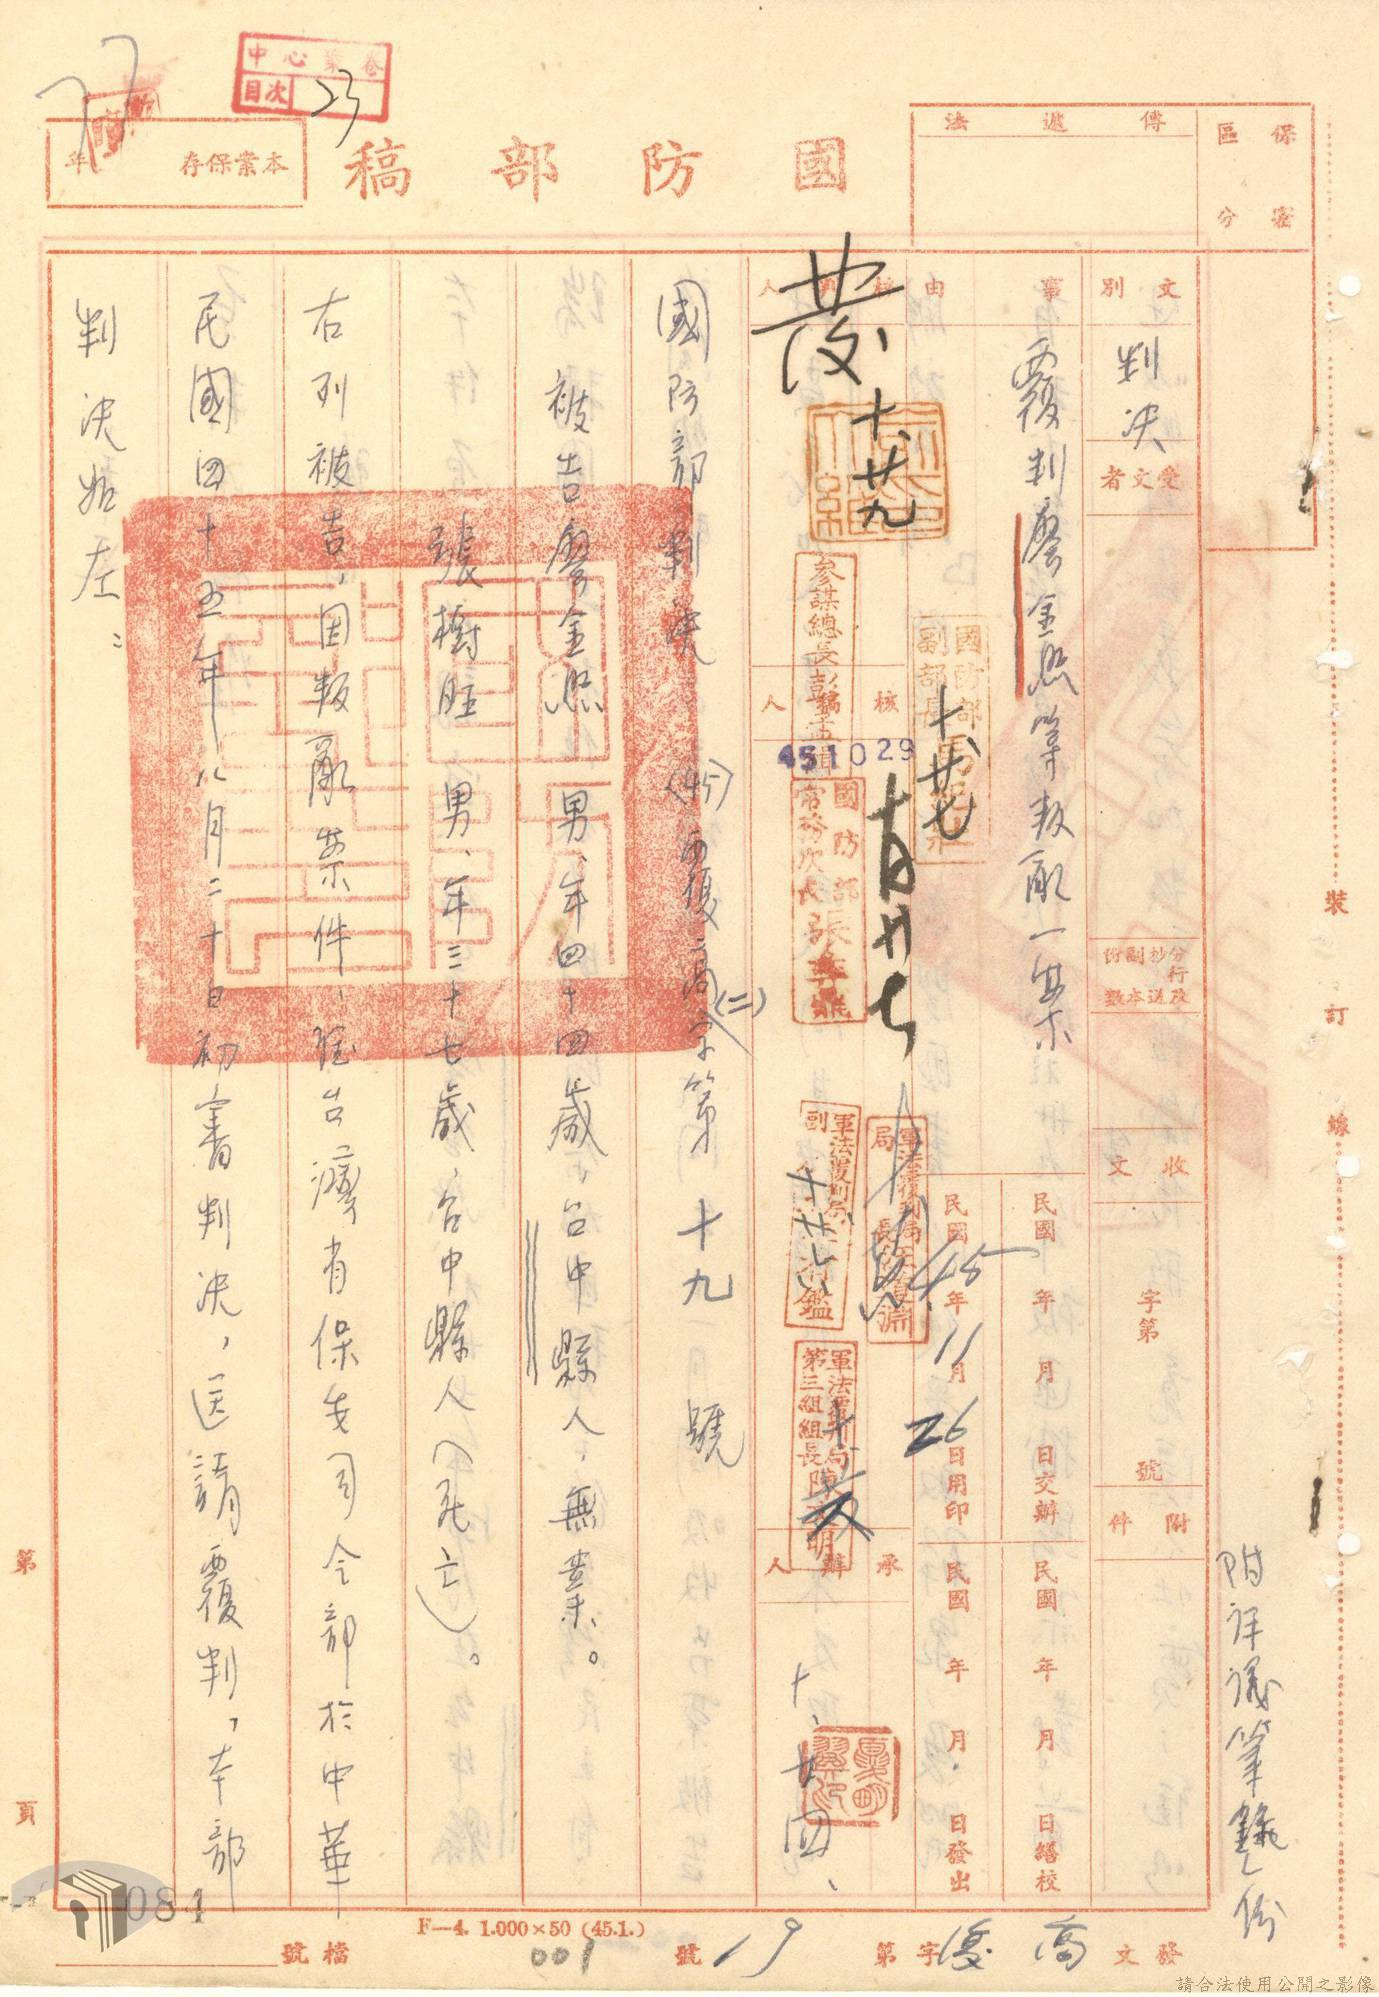 中心業卷
目次 23
本業保存 年
國防部稿
傳遞法
保密區分
文別 判決
受文者
事由 覆判廖金照等叛亂一案
分行及抄送副本份數
收文 字第 號
附件
附評議筆錄一份
民國 年 月 日交辦
民國 年 月 日繕校
民國45年11月26日用印
民國 年 月 日發出
核判人
發 十、廿九
參謀總長彭孟緝
國防部副部長
十、廿七
451029
國防部常務次長張
核稿人
軍法覆判局局長
軍法覆判局副
軍法覆判局第三組組長陳
承辦人
十、廿四、
國防部判決 (45)覆高(二)字第 十九 號
被告廖金照 男、年四十四歲、台中縣人、無業。
張樹旺 男、年三十七歲、台中縣人(死亡)。
右列被告、因叛亂案件、經台灣省保安司令部於中華
民國四十五年八月二十日初審判決，送請覆判，本部
判決如左：
裝 訂 線
第 頁
084
F—4. 1.000×50 (45.1.)
發文 高復 字第 19 號
001
檔號
請合法使用公開之影像